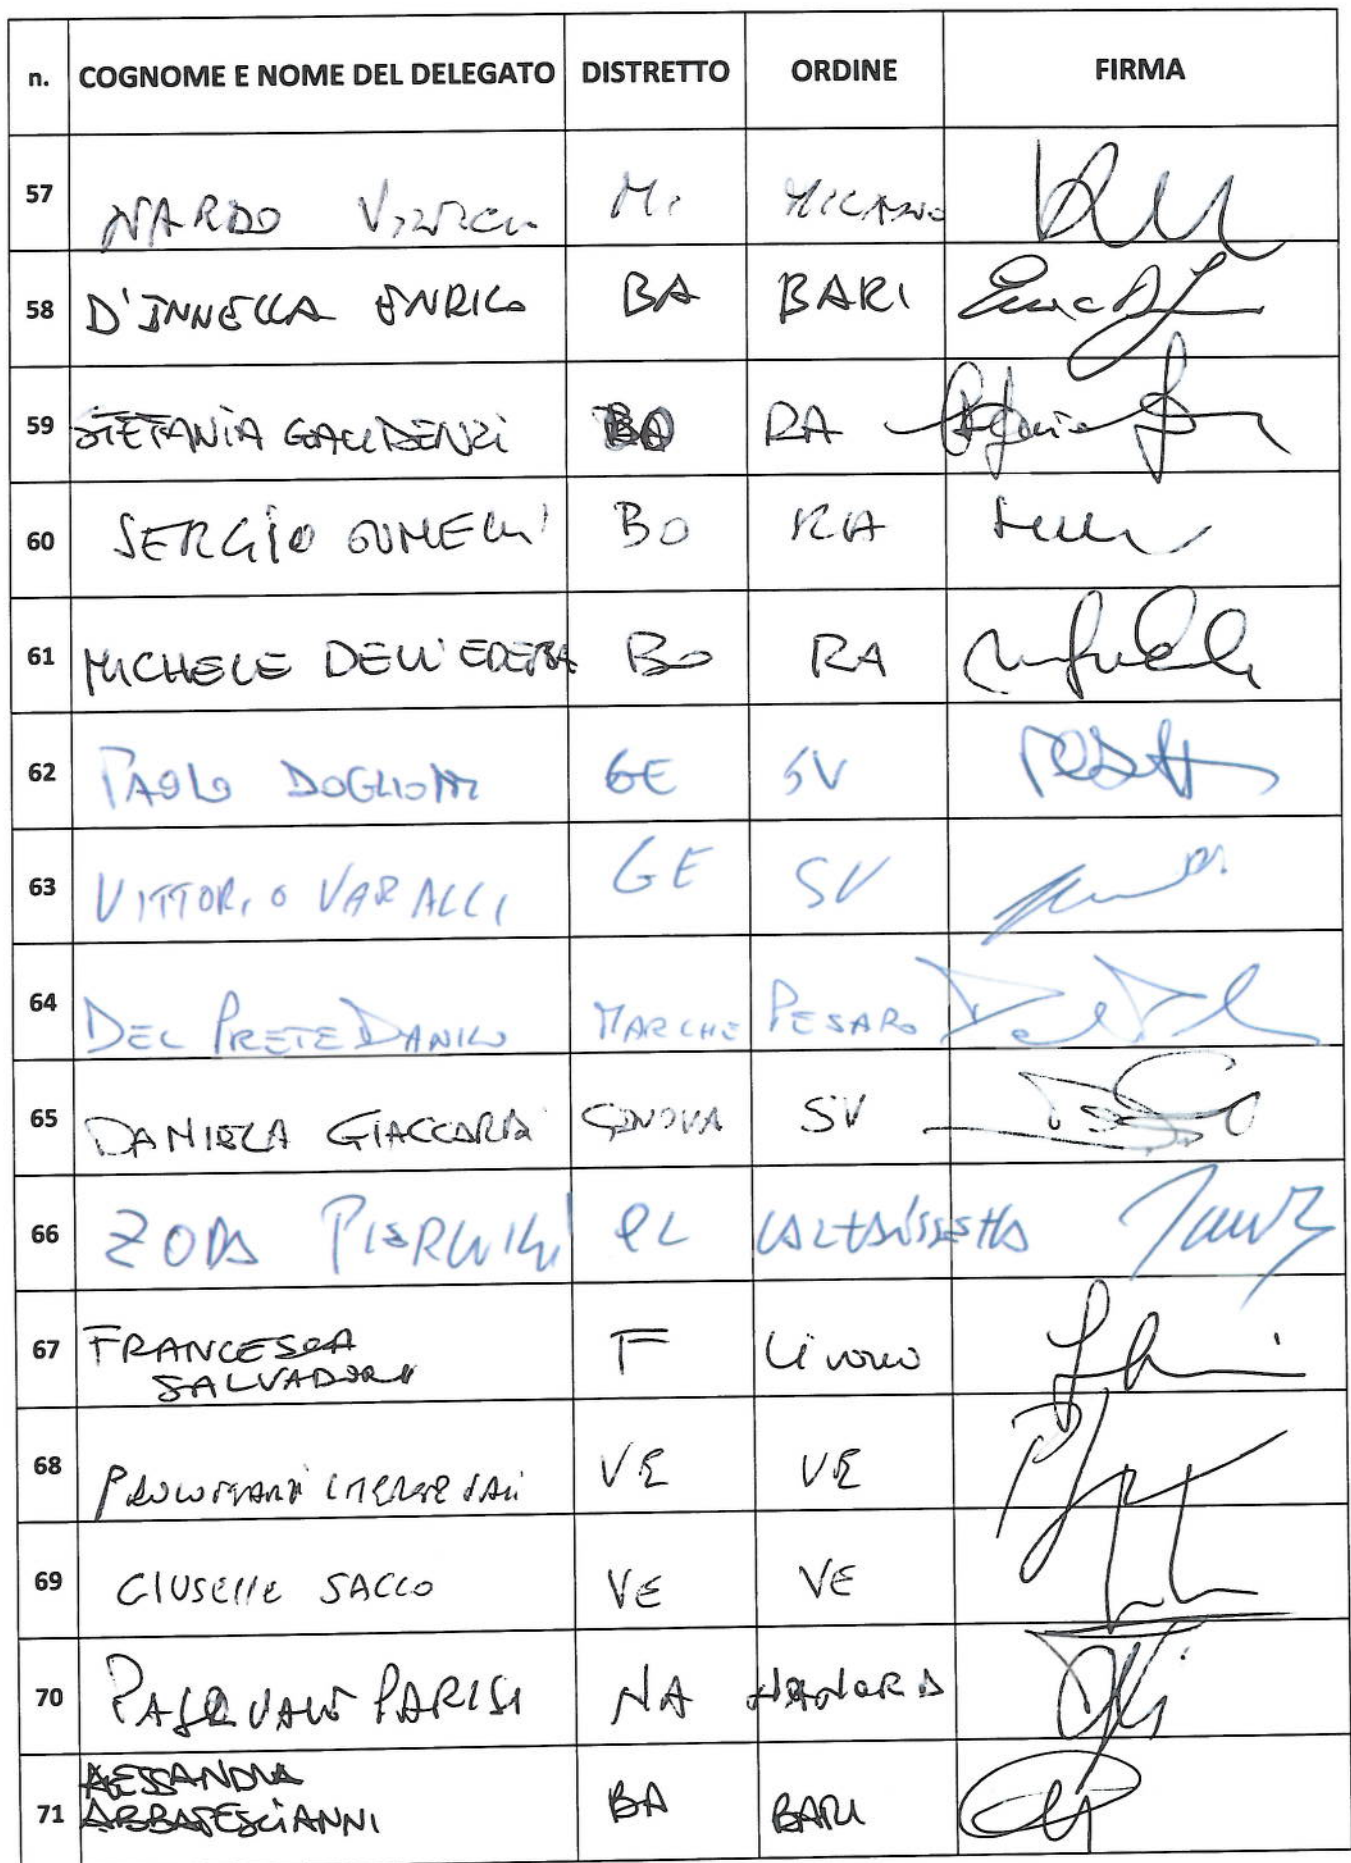 n. COGNOME E NOME DEL DELEGATO DISTRETTO ORDINE FIRMA
57 NARDO MI MILANO
58 D'INNELLA ENRICO BA BARI
59 STEFANIA GAUDENZI BO RA
60 SERGIO GONELLI BO RA
61 MICHELE DELL'EDERA BO RA
62 PAOLO DOGLIOTTI GE SV
63 VITTORIO VARALLI GE SV
64 DEL PRETE DANILO MARCHE PESARO
65 DANIELA GIACCARDI GENOVA SV
66 ZODA PIERLUIGI CL CALTANISSETTA
67 FRANCESCA
SALVADORI F Livorno
68 VE VE
69 GIUSEPPE SACCO VE VE
70 PASQUALE PARISI NA
71 ALESSANDRA
ABBATESCIANNI BA BARI